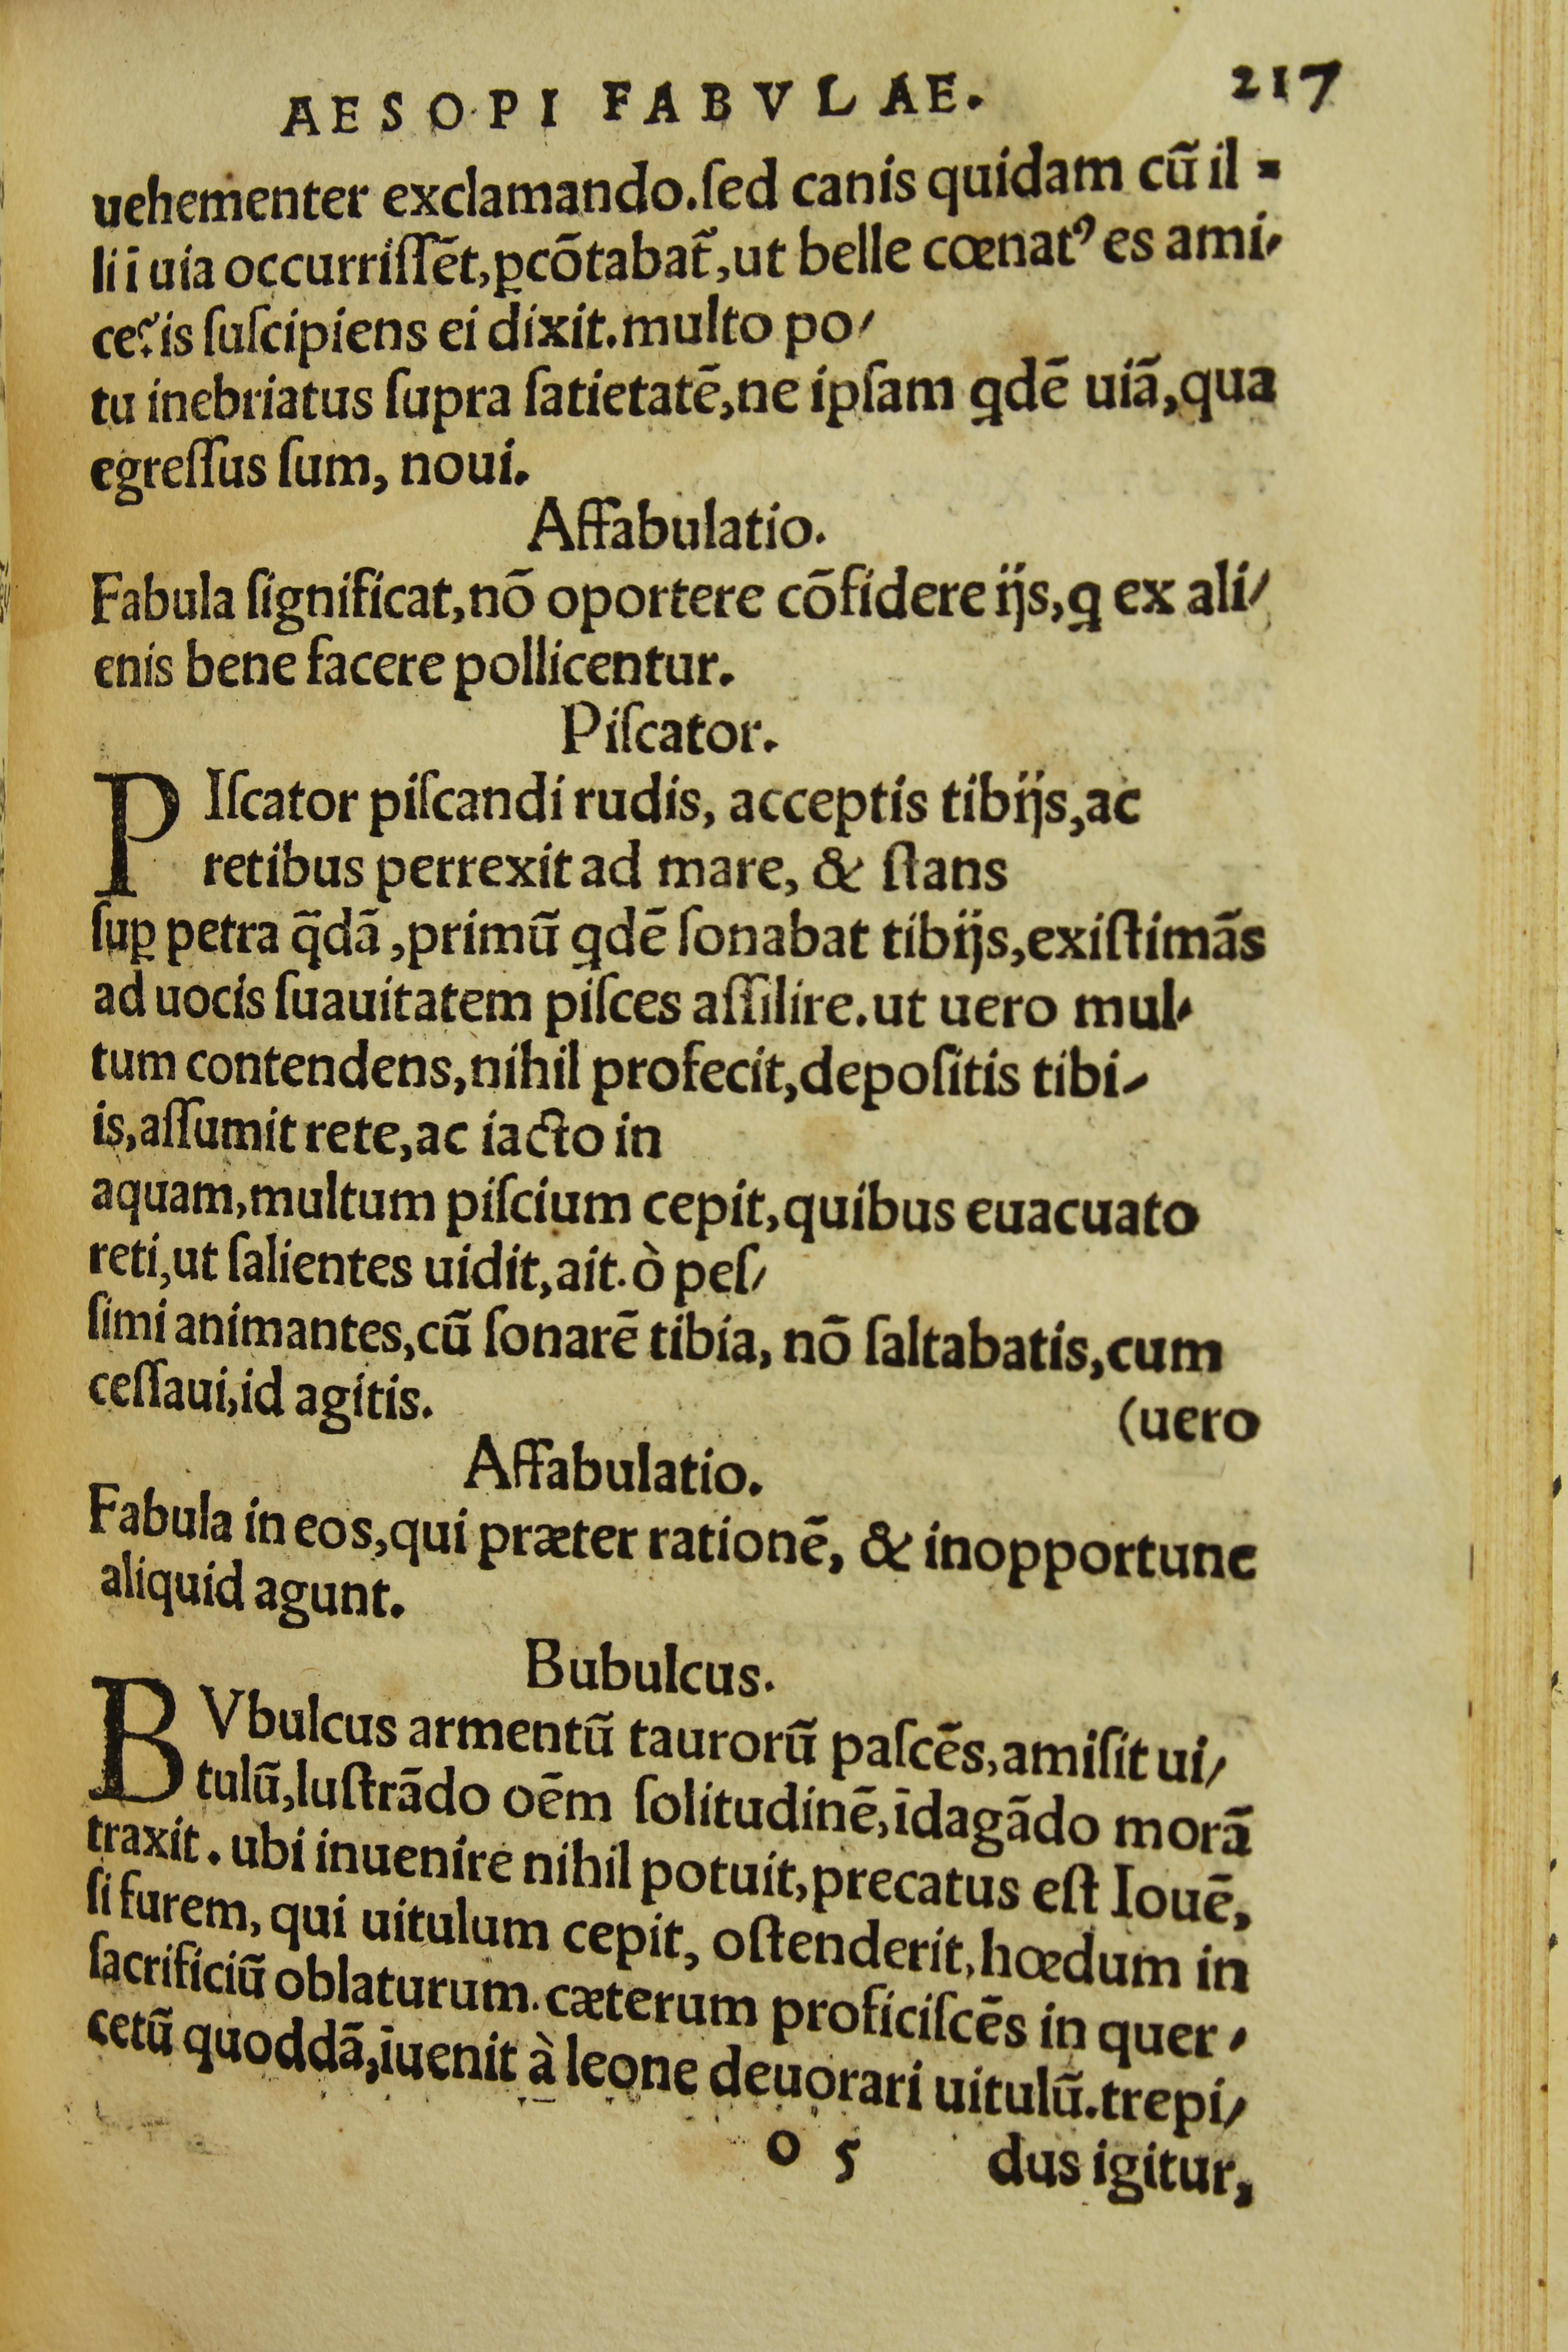 AESOPI FABVLAE. 217
uehementer exclamando.ſed canis quidam cũ il-
li ĩ uia occurriſſẽt,ꝑcõtabat̃,ut belle cœnatꝰ es ami/
ce?is ſuſcipiens ei dixit.multo po/
tu inebriatus ſupra ſatietatẽ,ne ipſam ꝗdẽ uiã,qua
egreſſus ſum, noui.
Affabulatio.
Fabula ſignificat,nõ oportere cõfidere ijs,ꝗ ex ali/
enis bene facere pollicentur.
Piſcator.
PIſcator piſcandi rudis, acceptis tibijs,ac
retibus perrexit ad mare, & ſtans
ſuꝑ petra q̃dã,primũ ꝗdẽ ſonabat tibijs,exiſtimãs
ad uocis ſuauitatem piſces aſſilire.ut uero mul/
tum contendens,nihil profecit,depoſitis tibi/
is,aſſumit rete,ac iacto in
aquam,multum piſcium cepit,quibus euacuato
reti,ut ſalientes uidit,ait.ò peſ/
ſimi animantes,cũ ſonarẽ tibia, nõ ſaltabatis,cum
ceſſaui,id agitis. (uero
Affabulatio.
Fabula in eos,qui præter rationẽ, & inopportune
aliquid agunt.
Bubulcus.
BVbulcus armentũ taurorũ paſcẽs,amiſit ui/
tulũ,luſtrãdo oẽm ſolitudinẽ,ĩdagãdo morã
traxit. ubi inuenire nihil potuit,precatus eſt Iouẽ,
ſi furem, qui uitulum cepit, oſtenderit,hœdum in
ſacrificiũ oblaturum.cæterum proficiſcẽs in quer/
cetũ quoddã,ĩuenit à leone deuorari uitulũ.trepi/
o 5 dus igitur,